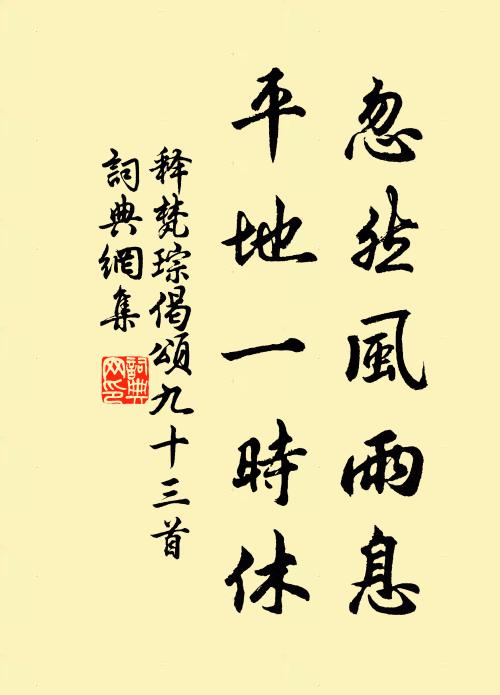 忽然風雨息
平地一時休
释梵琮偈頌九十三首
詞典網集
詞典
网印